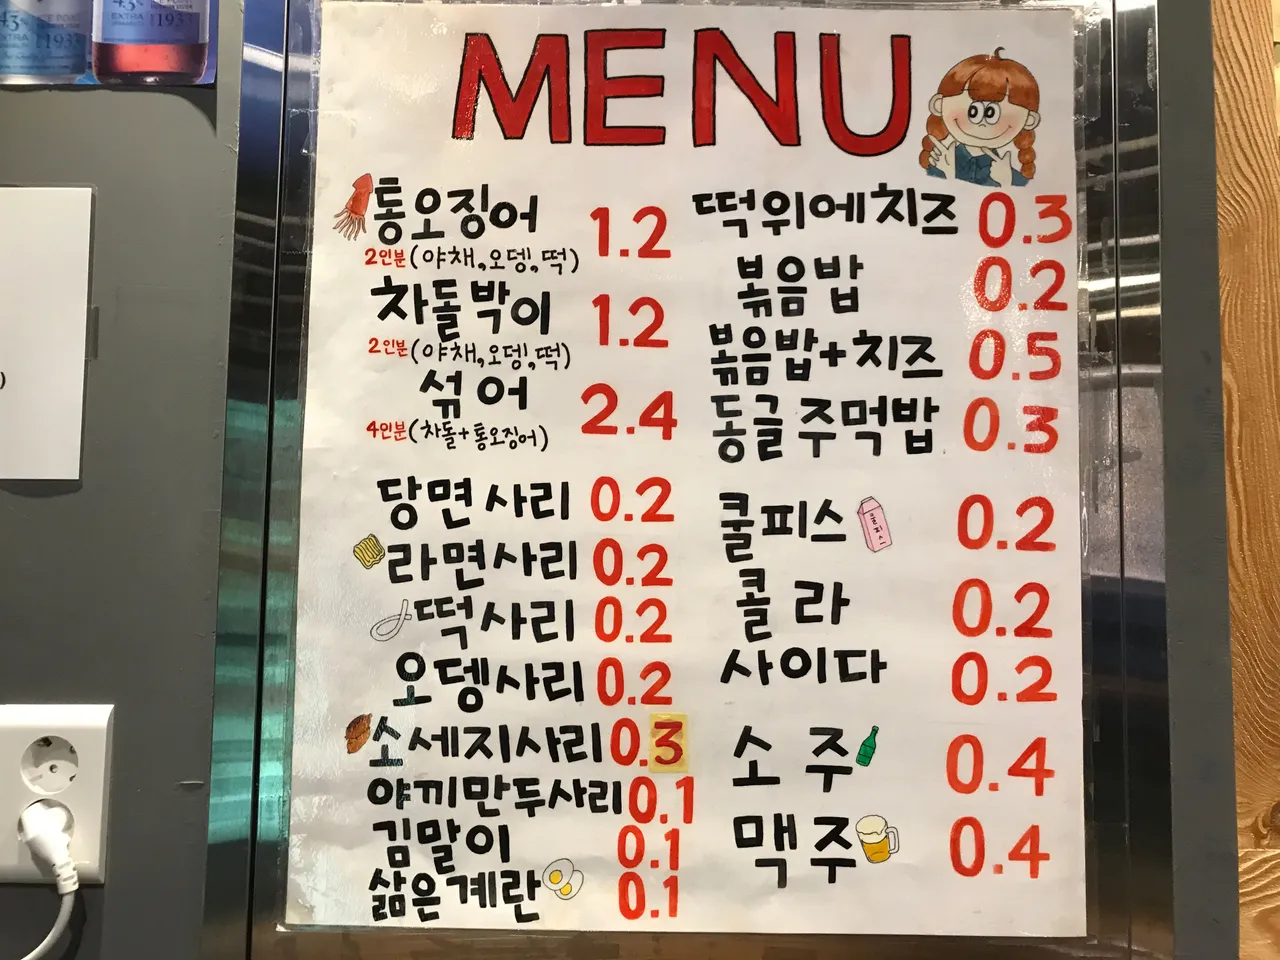 43%
EXTRA
1933
43%
EXTRA
1933
)
MENU
통오징어 1.2
2인분(야채,오뎅,떡)
차돌박이 1.2
2인분(야채,오뎅,떡)
섞어 2.4
4인분(차돌+통오징어)
당면사리 0.2
라면사리 0.2
떡사리 0.2
오뎅사리 0.2
소세지사리 0.3
야끼만두사리 0.1
김말이 0.1
삶은계란 0.1
떡위에치즈 0.3
볶음밥 0.2
볶음밥+치즈 0.5
동글주먹밥 0.3
쿨피스 0.2
콜라 0.2
사이다 0.2
소주 0.4
맥주 0.4